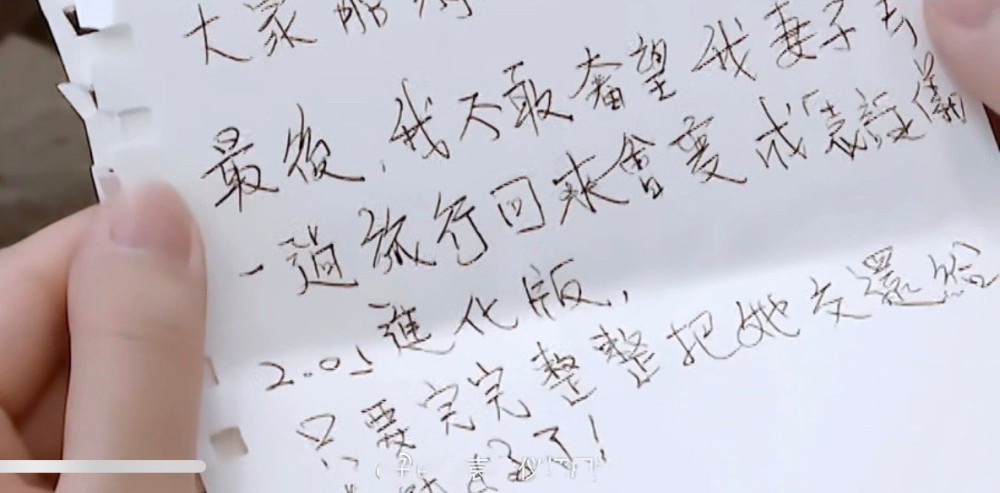 大家
最後,我不敢奢望我妻子去
一趟旅行回來會變成"袁詠儀
2.0"進化版,
只要完完整整把她交還給
了!